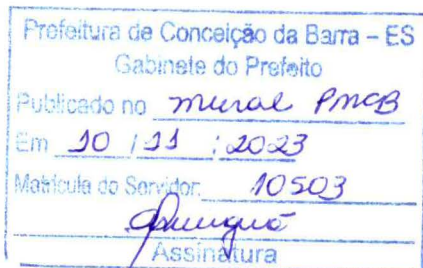 Prefeitura de Conceição da Barra – ES
Gabinete do Prefeito
Publicado no mural PMCB
Em 10 / 11 : 2023
Matrícula do Servidor: 10503
Assinatura